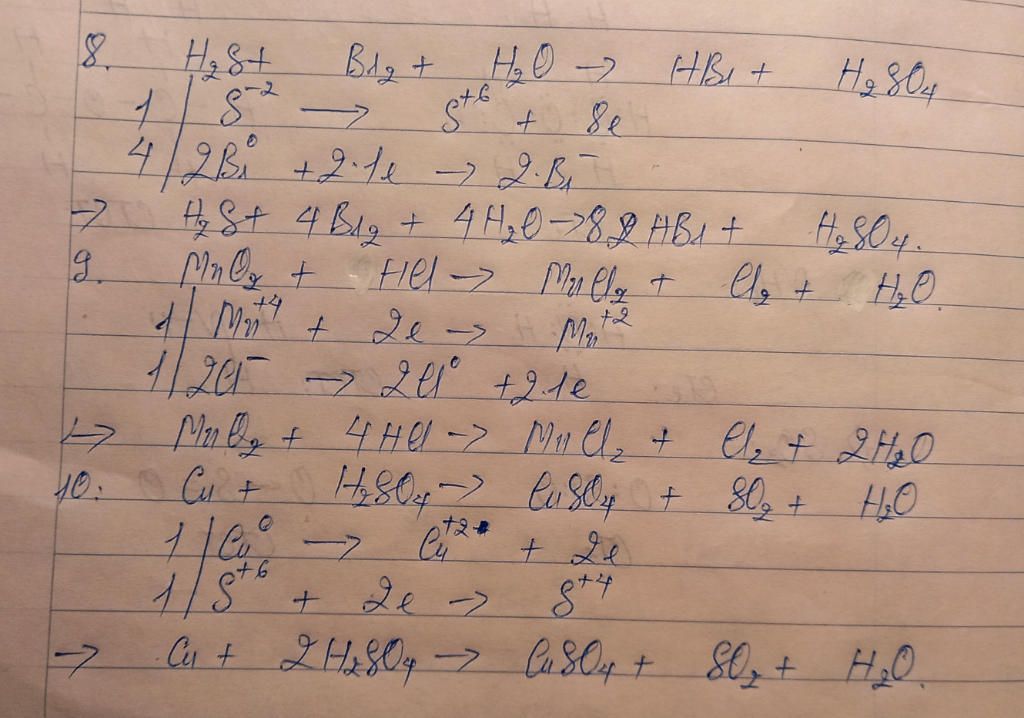 8. H₂S + Br₂ + H₂O → HBr + H₂SO₄
1 | S⁻² → S⁺⁶ + 8e
4 | 2Br⁰ + 2·1e → 2·Br⁻
→ H₂S + 4Br₂ + 4H₂O → 8HBr + H₂SO₄.
9. MnO₂ + HCl → MnCl₂ + Cl₂ + H₂O
1 | Mn⁺⁴ + 2e → Mn⁺²
1 | 2Cl⁻ → 2Cl⁰ + 2.1e
→ MnO₂ + 4HCl → MnCl₂ + Cl₂ + 2H₂O
10: Cu + H₂SO₄ → CuSO₄ + SO₂ + H₂O
1 | Cu⁰ → Cu⁺² + 2e
1 | S⁺⁶ + 2e → S⁺⁴
→ Cu + 2H₂SO₄ → CuSO₄ + SO₂ + H₂O.